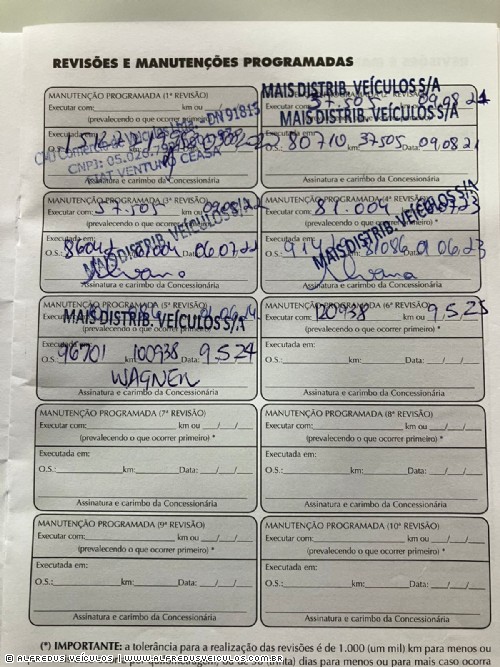 REVISÕES E MANUTENÇÕES PROGRAMADAS
MANUTENÇÃO PROGRAMADA (1ª REVISÃO)
Executar com: km ou
(prevalecendo o que ocorrer primeiro)
CNPJ: 05.026.
FIAT VENTUNO CEASA
DN 91815
Assinatura e carimbo da Concessionária
MAIS DISTRIB. VEÍCULOS S/A
37.505 09.08.21
MAIS DISTRIB. VEÍCULOS S/A
O.S.: 80710 37505 Data: 09.08.21
Assinatura e carimbo da Concessionária
MANUTENÇÃO PROGRAMADA (3ª REVISÃO)
Executar com: 57.505
(prevalecendo o que ocorrer primeiro)
MAIS DISTRIB. VEÍCULOS S/A
Executada em:
O.S.: Data: 06.07.22
Assinatura e carimbo da Concessionária
MANUTENÇÃO PROGRAMADA (4ª REVISÃO)
Executar com: 81.004
MAIS DISTRIB. VEÍCULOS S/A
Executada em:
O.S.: 06.23
Assinatura e carimbo da Concessionária
MANUTENÇÃO PROGRAMADA (5ª REVISÃO)
MAIS DISTRIB. VEÍCULOS S/A
(prevalecendo o que ocorrer primeiro)
Executada em:
O.S.: 96701 km: 100938 Data: 9.5.24
WAGNER
Assinatura e carimbo da Concessionária
MANUTENÇÃO PROGRAMADA (6ª REVISÃO)
Executar com: 120938 km ou 9.5.25
(prevalecendo o que ocorrer primeiro) *
Executada em:
O.S.: km: Data: / /
Assinatura e carimbo da Concessionária
MANUTENÇÃO PROGRAMADA (7ª REVISÃO)
Executar com: km ou / /
(prevalecendo o que ocorrer primeiro) *
Executada em:
O.S.: km: Data: / /
Assinatura e carimbo da Concessionária
MANUTENÇÃO PROGRAMADA (8ª REVISÃO)
Executar com: km ou / /
(prevalecendo o que ocorrer primeiro) *
Executada em:
O.S.: km: Data: / /
Assinatura e carimbo da Concessionária
MANUTENÇÃO PROGRAMADA (9ª REVISÃO)
Executar com: km ou / /
(prevalecendo o que ocorrer primeiro) *
Executada em:
O.S.: km: Data: / /
Assinatura e carimbo da Concessionária
MANUTENÇÃO PROGRAMADA (10ª REVISÃO)
Executar com: km ou / /
(prevalecendo o que ocorrer primeiro) *
Executada em:
O.S.: km: Data: / /
Assinatura e carimbo da Concessionária
(*) IMPORTANTE: a tolerância para a realização das revisões é de 1.000 (um mil) km para menos ou
dias para menos ou para mais caso ocorra
© ALFREDUS VEÍCULOS | WWW.ALFREDUSVEICULOS.COM.BR